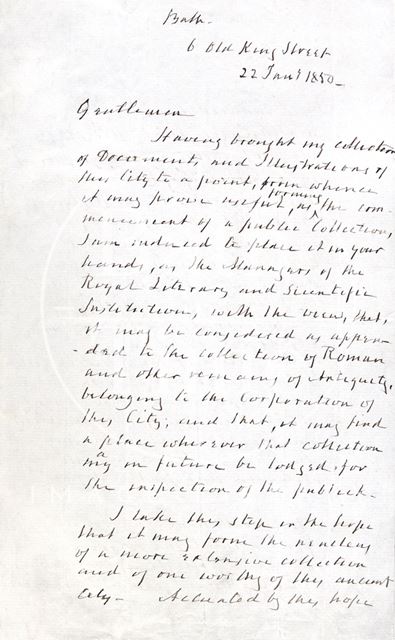 Bath.
6 Old King Street
22 Jany 1850_
Gentlemen
Having brought my collection
of Documents, and Illustrations of
this City to a point, from whence
forming
it may prove useful, as the com-
mencement of a public Collection,
I am induced to place it in your
hands, as the Managers of the
Royal Literary and Scientific
Institution, with the view, that,
it may be considered as appen-
-ded to the collection of Roman
and other remains of Antiquity,
belonging to the Corporation of
this City; and that, it may find
a place wherever that collection
may in future be lodged for
the inspection of the publick.
I take this step in the hope
that it may form the nucleus
of a more extensive collection
and of one worthy of this ancient
City_ Actuated by this hope